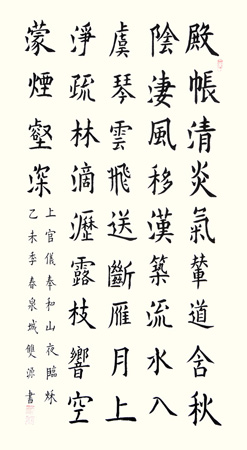 殿帳清炎氣輦道含秋
陰淒風移漢築流水入
虞琴雲飛送斷雁月上
淨疏林滴瀝露枝響空
濛煙壑深
上官儀奉和山夜臨秋
乙未季春泉城雙源書